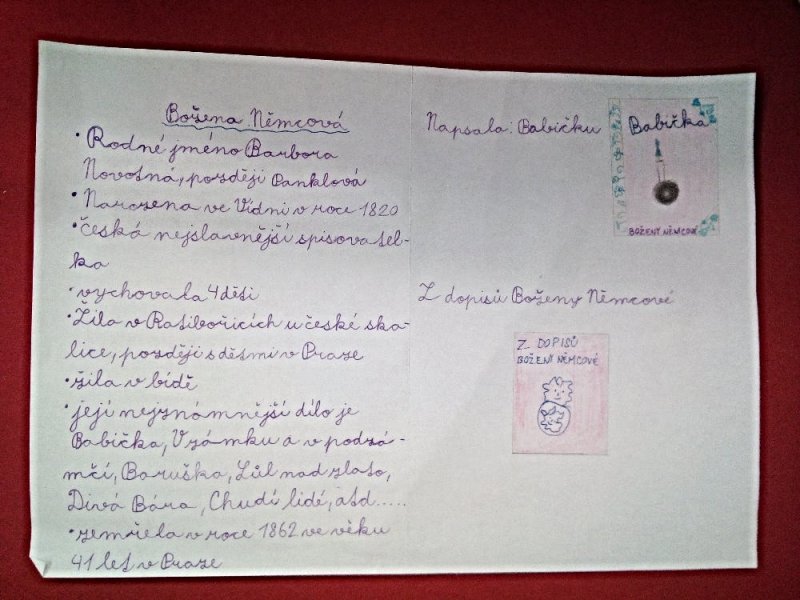 Božena Němcová
• Rodné jméno Barbora
Novotná, později Panklová
• Narozena ve Vídni v roce 1820
• česká nejslavnější spisovatel-
ka
• vychovala 4 děti
• Žila v Ratibořicích u české ska-
lice, později s dětmi v Praze
• žila v bídě
• její nejznámnější dílo je
Babička, V zámku a v podzá-
mčí, Baruška, Sůl nad zlato,
Divá Bára, Chudí lidé, atd.....
• zemřela v roce 1862 ve věku
41 let v Praze
Napsala: Babičku
Babička
BOŽENY NĚMCOVÉ
Z dopisů Boženy Němcové
Z DOPISŮ
BOŽENY NĚMCOVÉ